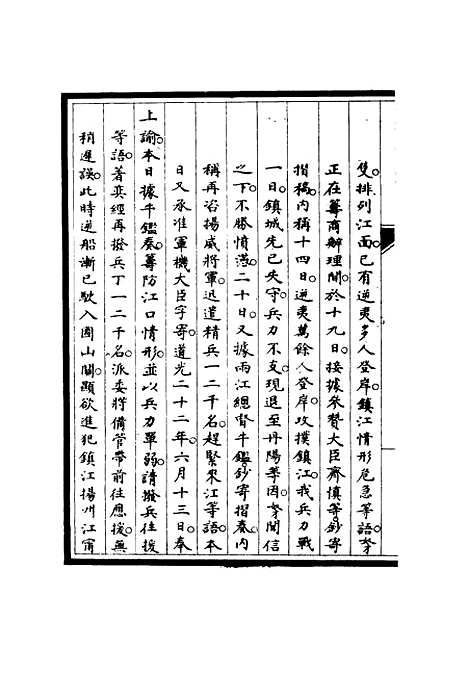 雙。排列江面。已有逆夷多人登岸。鎮江情形危急等語。奴才
正在籌商辦理間。於十九日。接據參贊大臣齊慎等鈔寄
摺稿。內稱十四日。逆夷萬餘人登岸攻撲鎮江。我兵力戰
一日。鎮城先已失守。兵力不支。現退至丹陽等因。奴才聞信
之下。不勝憤懣。二十日。又據兩江總督牛鑑鈔寄摺奏。內
稱再咨揚威將軍。迅遣精兵一二千名。趕緊來江等語。本
日又承准軍機大臣字寄。道光二十二年六月十三日。奉
上諭。本日據牛鑑奏。籌防江口情形。並以兵力單弱。請撥兵往援
等語。著奕經再撥兵丁一二千名。派委將備管帶前往應援。無
稍遲誤。此時逆船漸已駛入圌山關。顯欲進犯鎮江揚州江甯